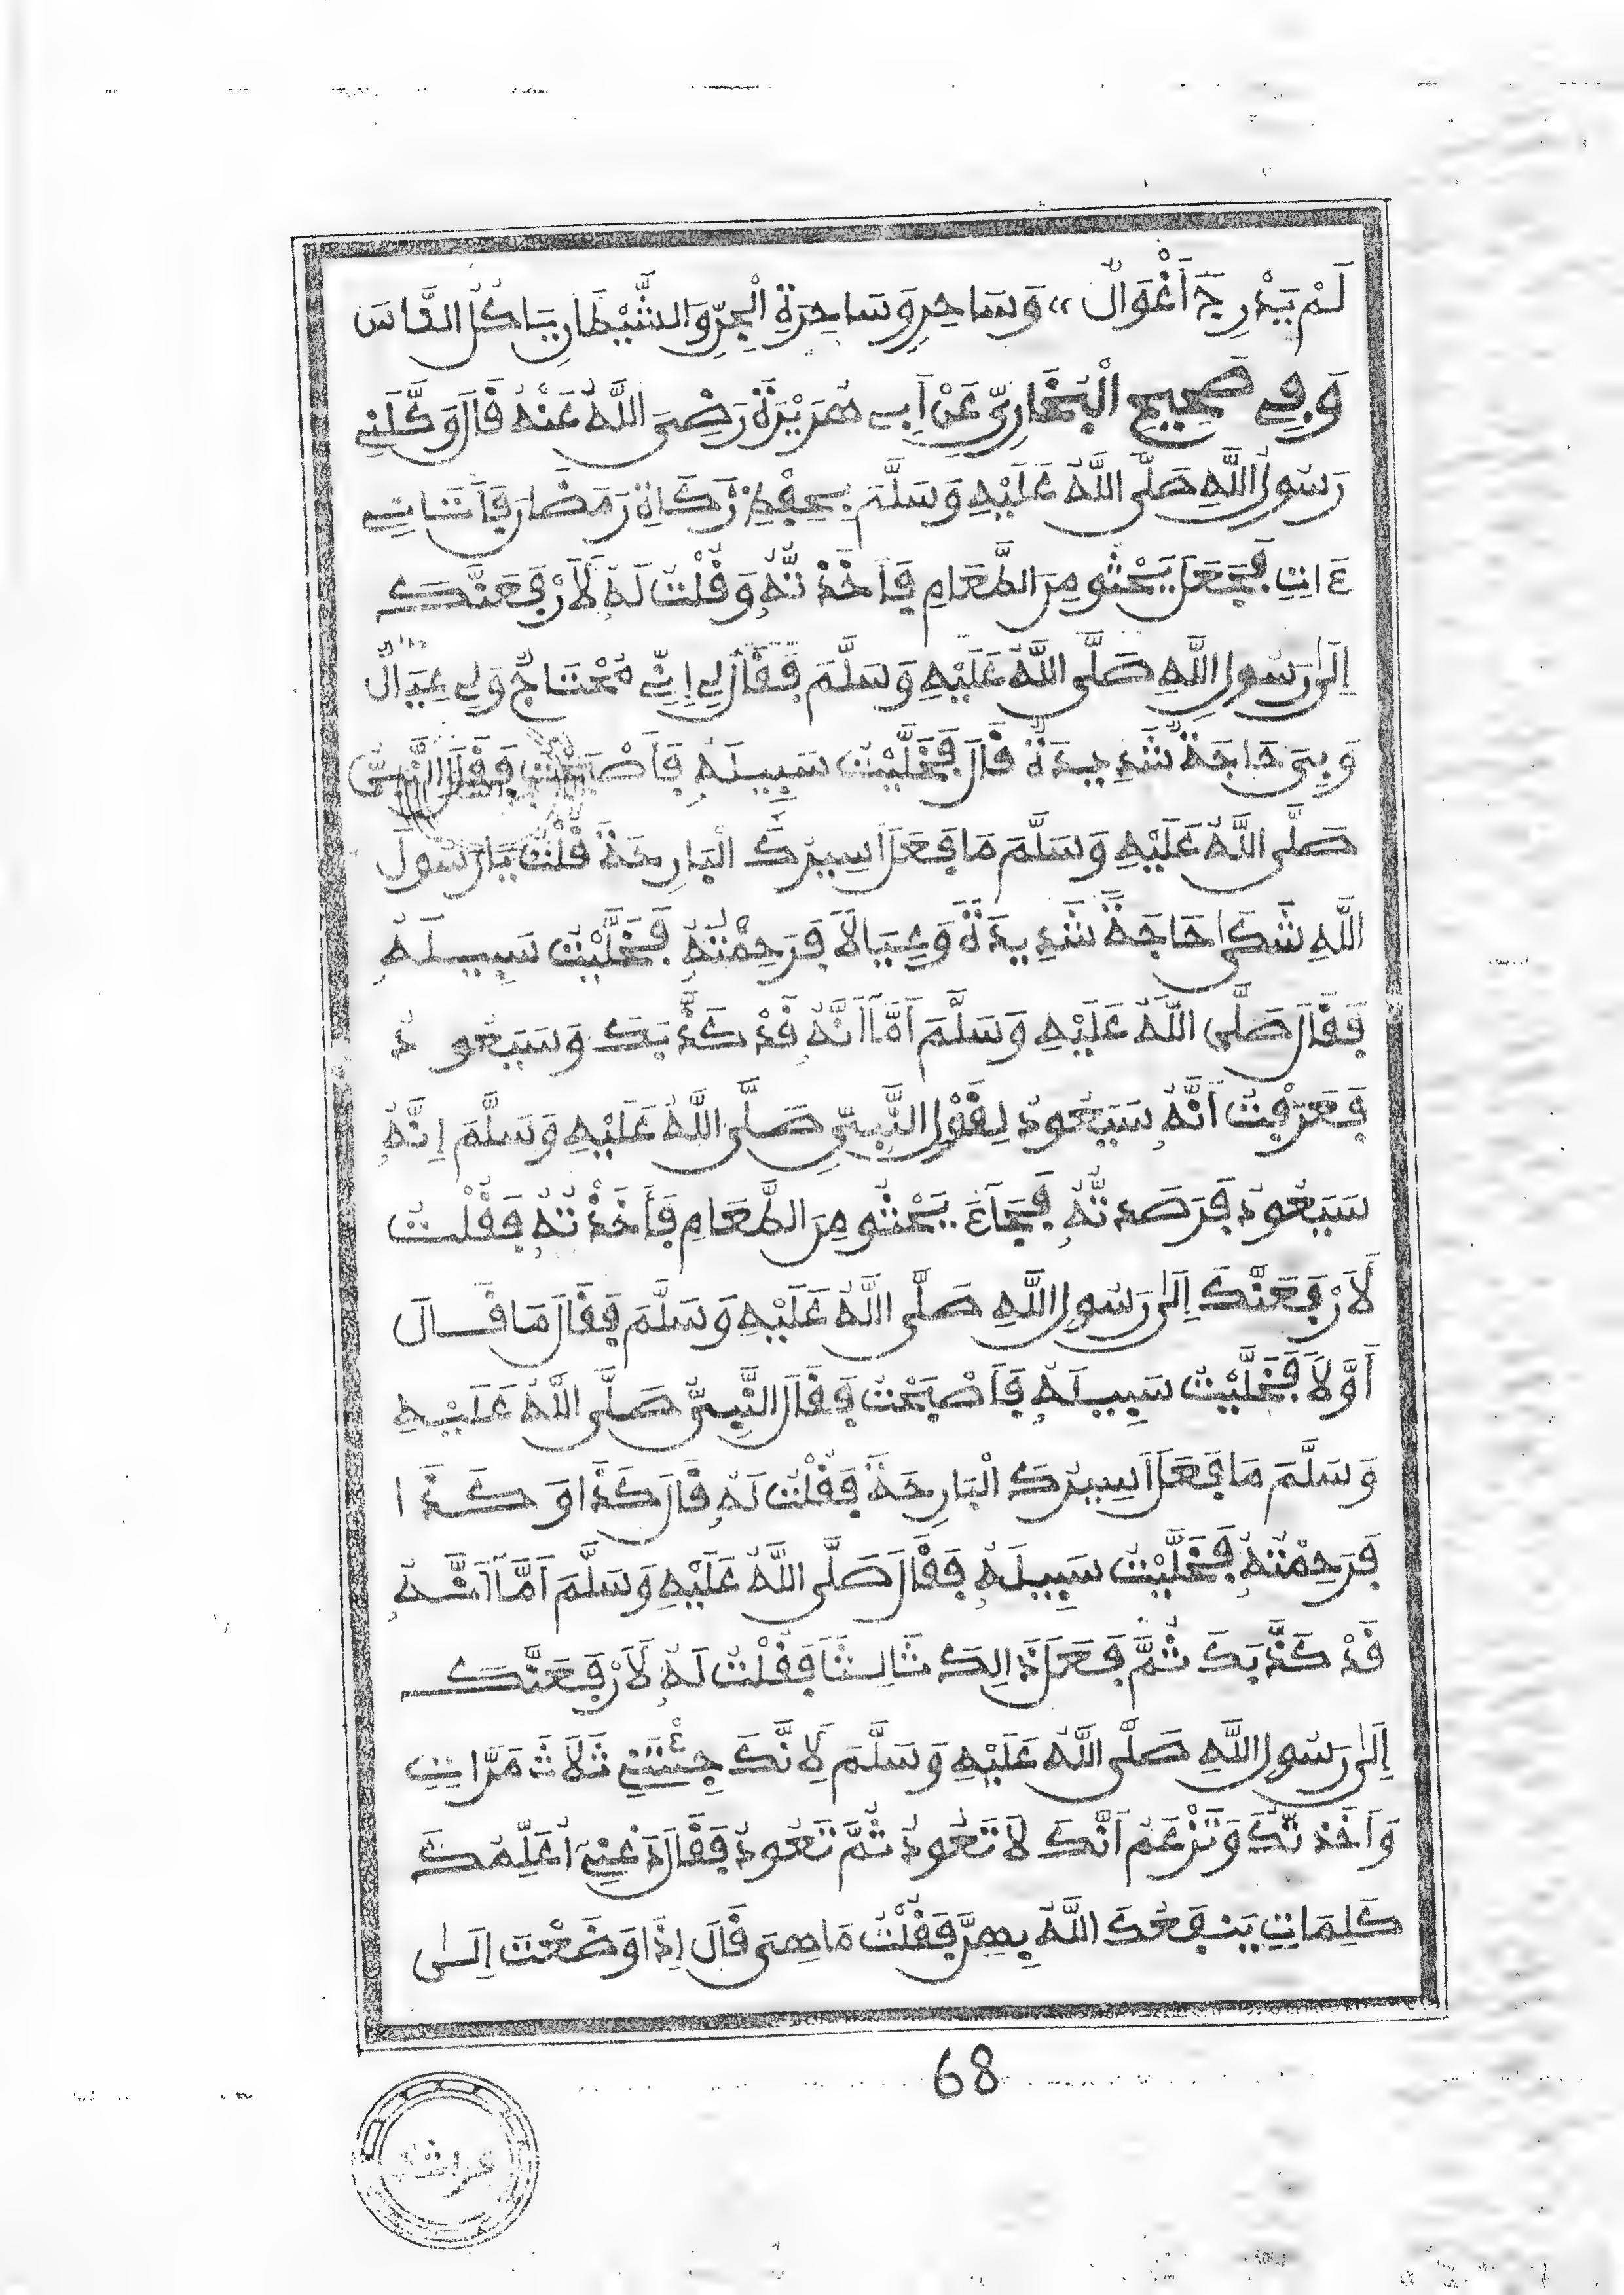 لَمْ يَدْرِ جَ أَغْوَالٌ » وَسَاحِرٍ وَسَاحِرَةِ الْجِنِّ وَالشَّيْطَانِ يَاكُلُ النَّاسَ
وَفِي صَحِيحِ الْبُخَارِيِّ عَنْ أَبِي هُرَيْرَةَ رَضِيَ اللَّهُ عَنْهُ قَالَ وَكَّلَنِي
رَسُولُ اللَّهِ صَلَّى اللَّهُ عَلَيْهِ وَسَلَّمَ بِحِفْظِ زَكَاةِ رَمَضَانَ فَأَتَانِي
ءَاتٍ فَجَعَلَ يَحْثُو مِنَ الطَّعَامِ فَأَخَذتُّهُ وَقُلْتُ لَهُ لَأَرْفَعَنَّكَ
إِلَى رَسُولِ اللَّهِ صَلَّى اللَّهُ عَلَيْهِ وَسَلَّمَ فَقَالَ لِي إِنِّي مُحْتَاجٌ وَلِي عِيَالٌ
وَبِيَ حَاجَةٌ شَدِيدَةٌ قَالَ فَخَلَّيْتُ سَبِيلَهُ فَأَصْبَحْتُ فَقَالَ النَّبِيُّ
صَلَّى اللَّهُ عَلَيْهِ وَسَلَّمَ مَا فَعَلَ أَسِيرُكَ الْبَارِحَةَ قُلْتُ يَا رَسُولَ
اللَّهِ شَكَى حَاجَةً شَدِيدَةً وَعِيَالًا فَرَحِمْتُهُ فَخَلَّيْتُ سَبِيلَهُ
فَقَالَ صَلَّى اللَّهُ عَلَيْهِ وَسَلَّمَ أَمَّا أَنَّهُ قَدْ كَذَّبَكَ وَسَيَعُودُ
فَعَرَفْتُ أَنَّهُ سَيَعُودُ لِقَوْلِ النَّبِيِّ صَلَّى اللَّهُ عَلَيْهِ وَسَلَّمَ إِنَّهُ
سَيَعُودُ فَرَصَدتُّهُ فَجَاءَ يَحْثُو مِنَ الطَّعَامِ فَأَخَذْتُهُ فَقُلْتُ
لَأَرْفَعَنَّكَ إِلَى رَسُولِ اللَّهِ صَلَّى اللَّهُ عَلَيْهِ وَسَلَّمَ فَقَالَ مَا قَالَ
أَوَّلًا فَخَلَّيْتُ سَبِيلَهُ فَأَصْبَحْتُ فَقَالَ النَّبِيُّ صَلَّى اللَّهُ عَلَيْهِ
وَسَلَّمَ مَا فَعَلَ أَسِيرُكَ الْبَارِحَةَ فَقُلْتُ لَهُ قَالَ كَذَا وَكَذَا
فَرَحِمْتُهُ فَخَلَّيْتُ سَبِيلَهُ فَقَالَ صَلَّى اللَّهُ عَلَيْهِ وَسَلَّمَ أَمَّا أَنَّهُ
قَدْ كَذَّبَكَ ثُمَّ فَعَلَ ذَالِكَ ثَالِثًا فَقُلْتُ لَهُ لَأَرْفَعَنَّكَ
إِلَى رَسُولِ اللَّهِ صَلَّى اللَّهُ عَلَيْهِ وَسَلَّمَ لِأَنَّكَ جِئْتَنِي ثَلَاثَ مَرَّاتٍ
وَأَخَذتُّكَ وَتَزْعَمُ أَنَّكَ لَا تَعُودُ ثُمَّ تَعُودُ فَقَالَ دَعْنِي أُعَلِّمُكَ
كَلِمَاتٍ يَنفَعُكَ اللَّهُ بِهِنَّ فَقُلْتُ مَا هِيَ قَالَ إِذَا وَضَعْتَ إِلَى
68